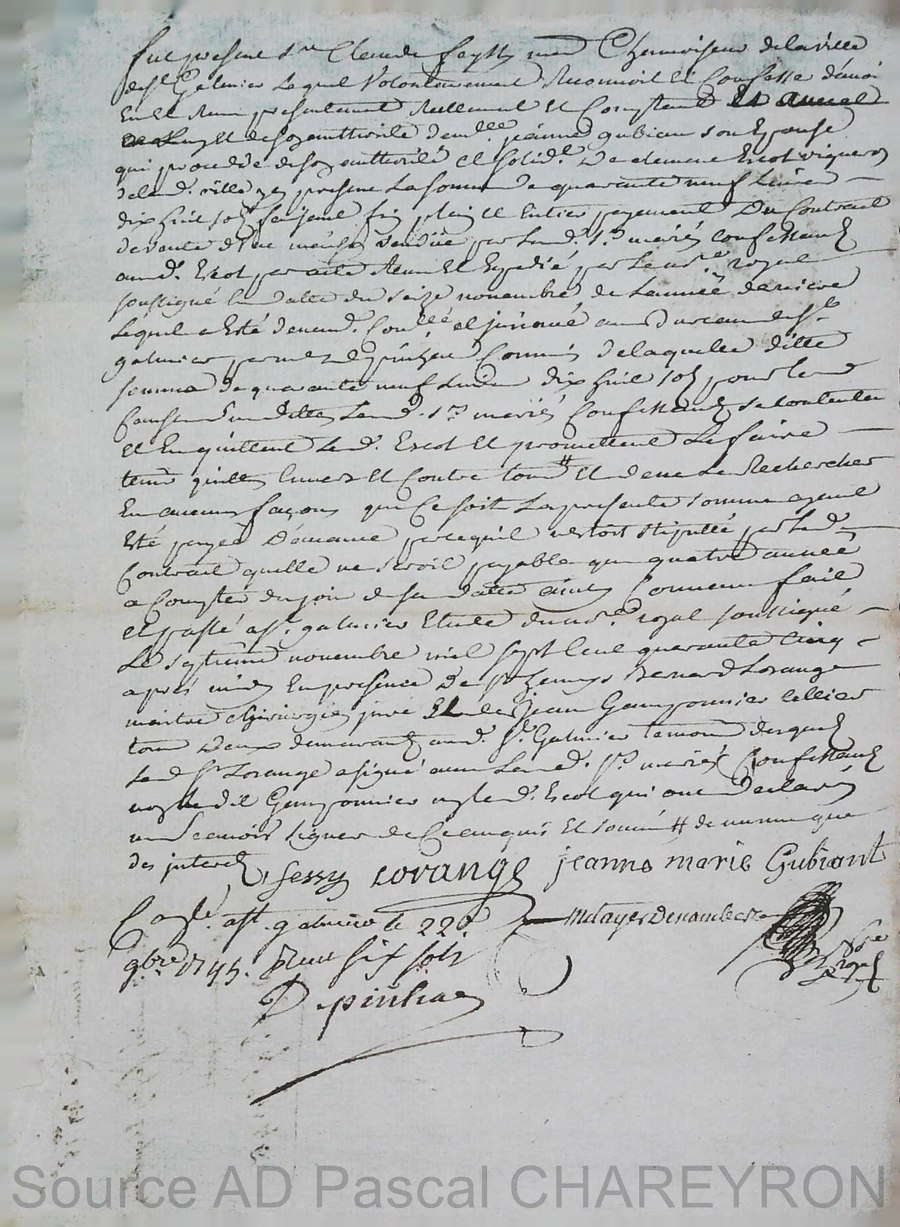 fut present Sr Claude fessy md Chamoiseur de la ville
de St Galmier Lequel Volontairement Reconnoit et Confesse d'avoir
Eu et Receu presentement Reellement et Comptant
et de soy authorite demlle jeanne gubian son Epouse
qui procedde de son authorité et solidt De clemene Escot vigneron
de lad. ville yci present La somme de quarante neuf Livres
dix huit sols faisant fin plein et Entier payement Du Contrat
de vante d'une maison vendüe par Lesd. Srs mariés Confessants
aud. Escot par acte Receu Et Expedié par Le nore royal
soussigné En datte du seize novembre de Lannée derniere
Lequel a Esté deuemt Conllé et jnsinué au Bureau de St
galmier par Me depinhac Commis de laquelle ditte
somme de quarante neuf Livres dix huit sols pour les
Causes susdittes Lesd. Srs mariés Confessants se contentent
et En quittent Led. Escot et promettent Le faire
tenir quitte Envers et Contre tous # et de ne Le Rechercher
En aucune façons que Ce soit La presente somme ayant
Esté payée D'avance parcequil Estoit stipullé par Led.
Contrat quelle ne seroit payable que quatre année
a Compter du jour de sa datte ainsy Convenu fait
et passé a St galmier Etude du nore royal soussigné
Le septieme novembre mil sept Cent quarante Cinq
après midy En presence De Sr Bernard Lorange
maitre chirurgien juré Et de Sr jean Gamponnier Cellier
tous deux demeurants aud. St Galmier temoins desquels
Led Sr Lorange a signé avec Lesd. Srs mariés Confessants
non Led. Gamponnier ny led. Escot qui ont declarés
ne sçavoir signer de Ce enquis Et sommés # de mesme que
des interets
fessy Lorange jeanne marie Gubiant
Conlé a St galmier le 22e
9bre 1745. Receu six sols
Depinhac
nore royal